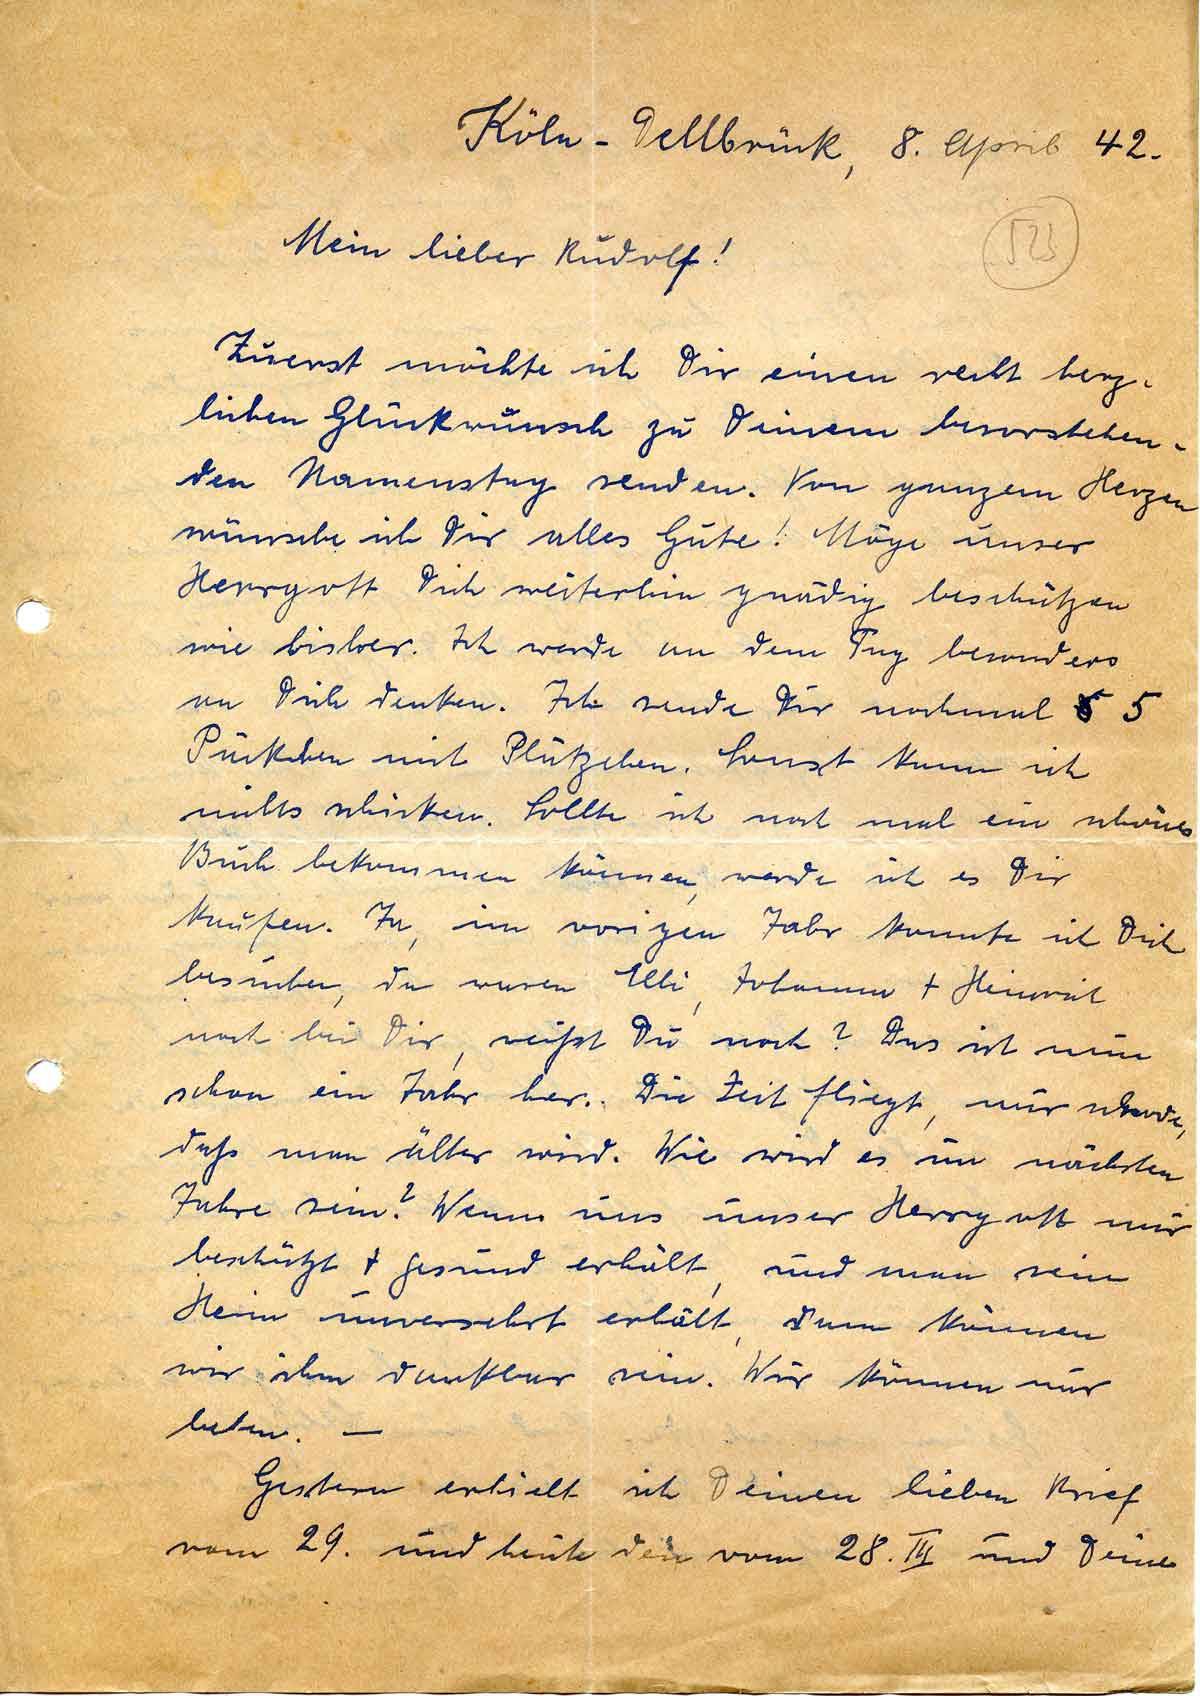 Köln-Dellbrück, 8. April 42.
523
Mein lieber Rudolf!
Zuerst möchte ich Dir einen recht herz-
lichen Glückwunsch zu Deinem bevorstehen-
den Namenstag senden. Von ganzem Herzen
wünsche ich Dir alles Gute! Möge unser
Herrgott Dich weiterhin gnädig beschützen
wie bisher. Ich werde an dem Tag besonders
an Dich denken. Ich sende Dir nochmal 5
Päckchen mit Plätzchen. Sonst kann ich
nichts schicken. Sollte ich noch mal ein schönes
Buch bekommen können, werde ich es Dir
kaufen. Ja, im vorigen Jahr konnte ich Dich
besuchen, da waren Elli, Johanna + Heinrich
noch bei Dir, weißt Du noch? Das ist nun
schon ein Jahr her. Die Zeit fliegt, nur schade,
daß man älter wird. Wie wird es im nächsten
Jahre sein? Wenn uns unser Herrgott nur
beschützt + gesund erhält, und man sein
Heim unversehrt erhält, dann können
wir ihm dankbar sein. Wir können nur
beten. —
Gestern erhielt ich Deinen lieben Brief
vom 29. und heute den vom 28. III und Deine